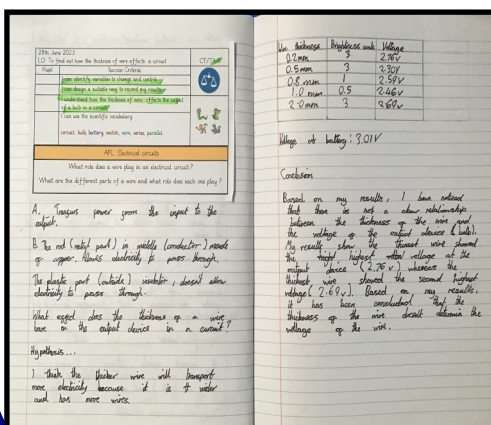 28th June 2023
LO: To find out how the thickness of wire affects a circuit
CT/
Pupil
Success Criteria:
I can identify variables to change and control.
I can design a suitable way to record my results.
I understand how the thickness of wire, affects the output
of a bulb in a circuit.
I can use the scientific vocabulary
circuit, bulb, battery, switch, wire, series, parallel
AFL: Electrical circuits
What role does a wire play in an electrical circuit?
What are the different parts of a wire and what role does each one play?
A. power from the input to the
output.
B. The rod (metal part) in middle (conductor) made
of copper. Allows electricity to pass through.
The plastic part (outside) insulator, doesnt allow
electricity to pass through.
What does the thickness of a wire
have on the output device in a curcuit?
Hypothosis...
I think the thicker wire will transport
more electricity because it is wider
and has more wires.
Wire thickness Brightness scale Voltage
0.2mm 3 2.76v
0.5mm 3 2.30v
0.8mm 1 2.59v
1.0mm 0.5 2.46v
2.0mm 3 2.69v
Voltage of battery: 3.01V
Conclusion
Based on my results, I have noticed
that there is not a clear relationship
between the thickness of the wire and
the voltage of the output device (bulb).
My results show the thinest wire showed
the highest voltage at the
output device (2.76 v) whereas the
thickest wire showed the second highest
voltage (2.69 v). Based on my results,
it has been concluded that the
thickness of the wire doesnt determin the
voltage of the wire.